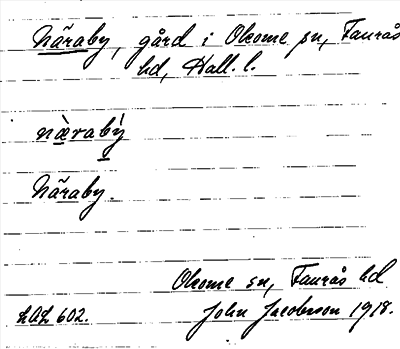 Näraby, gård i Okome sn, Faurås
hd, Hall. l.
næ̀rabý
Näraby.
Okome sn, Faurås hd
LAL 602. John Jacobsson 1918.